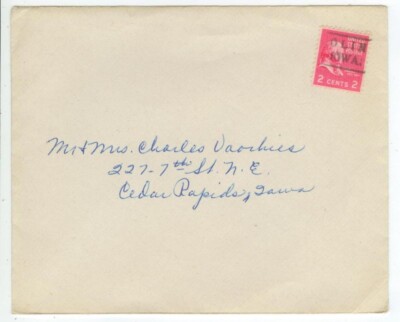 OLIN
IOWA.
2 CENTS 2
Mr & Mrs. Charles Voorhies
227-7th St. N.E.
Cedar Rapids, Iowa